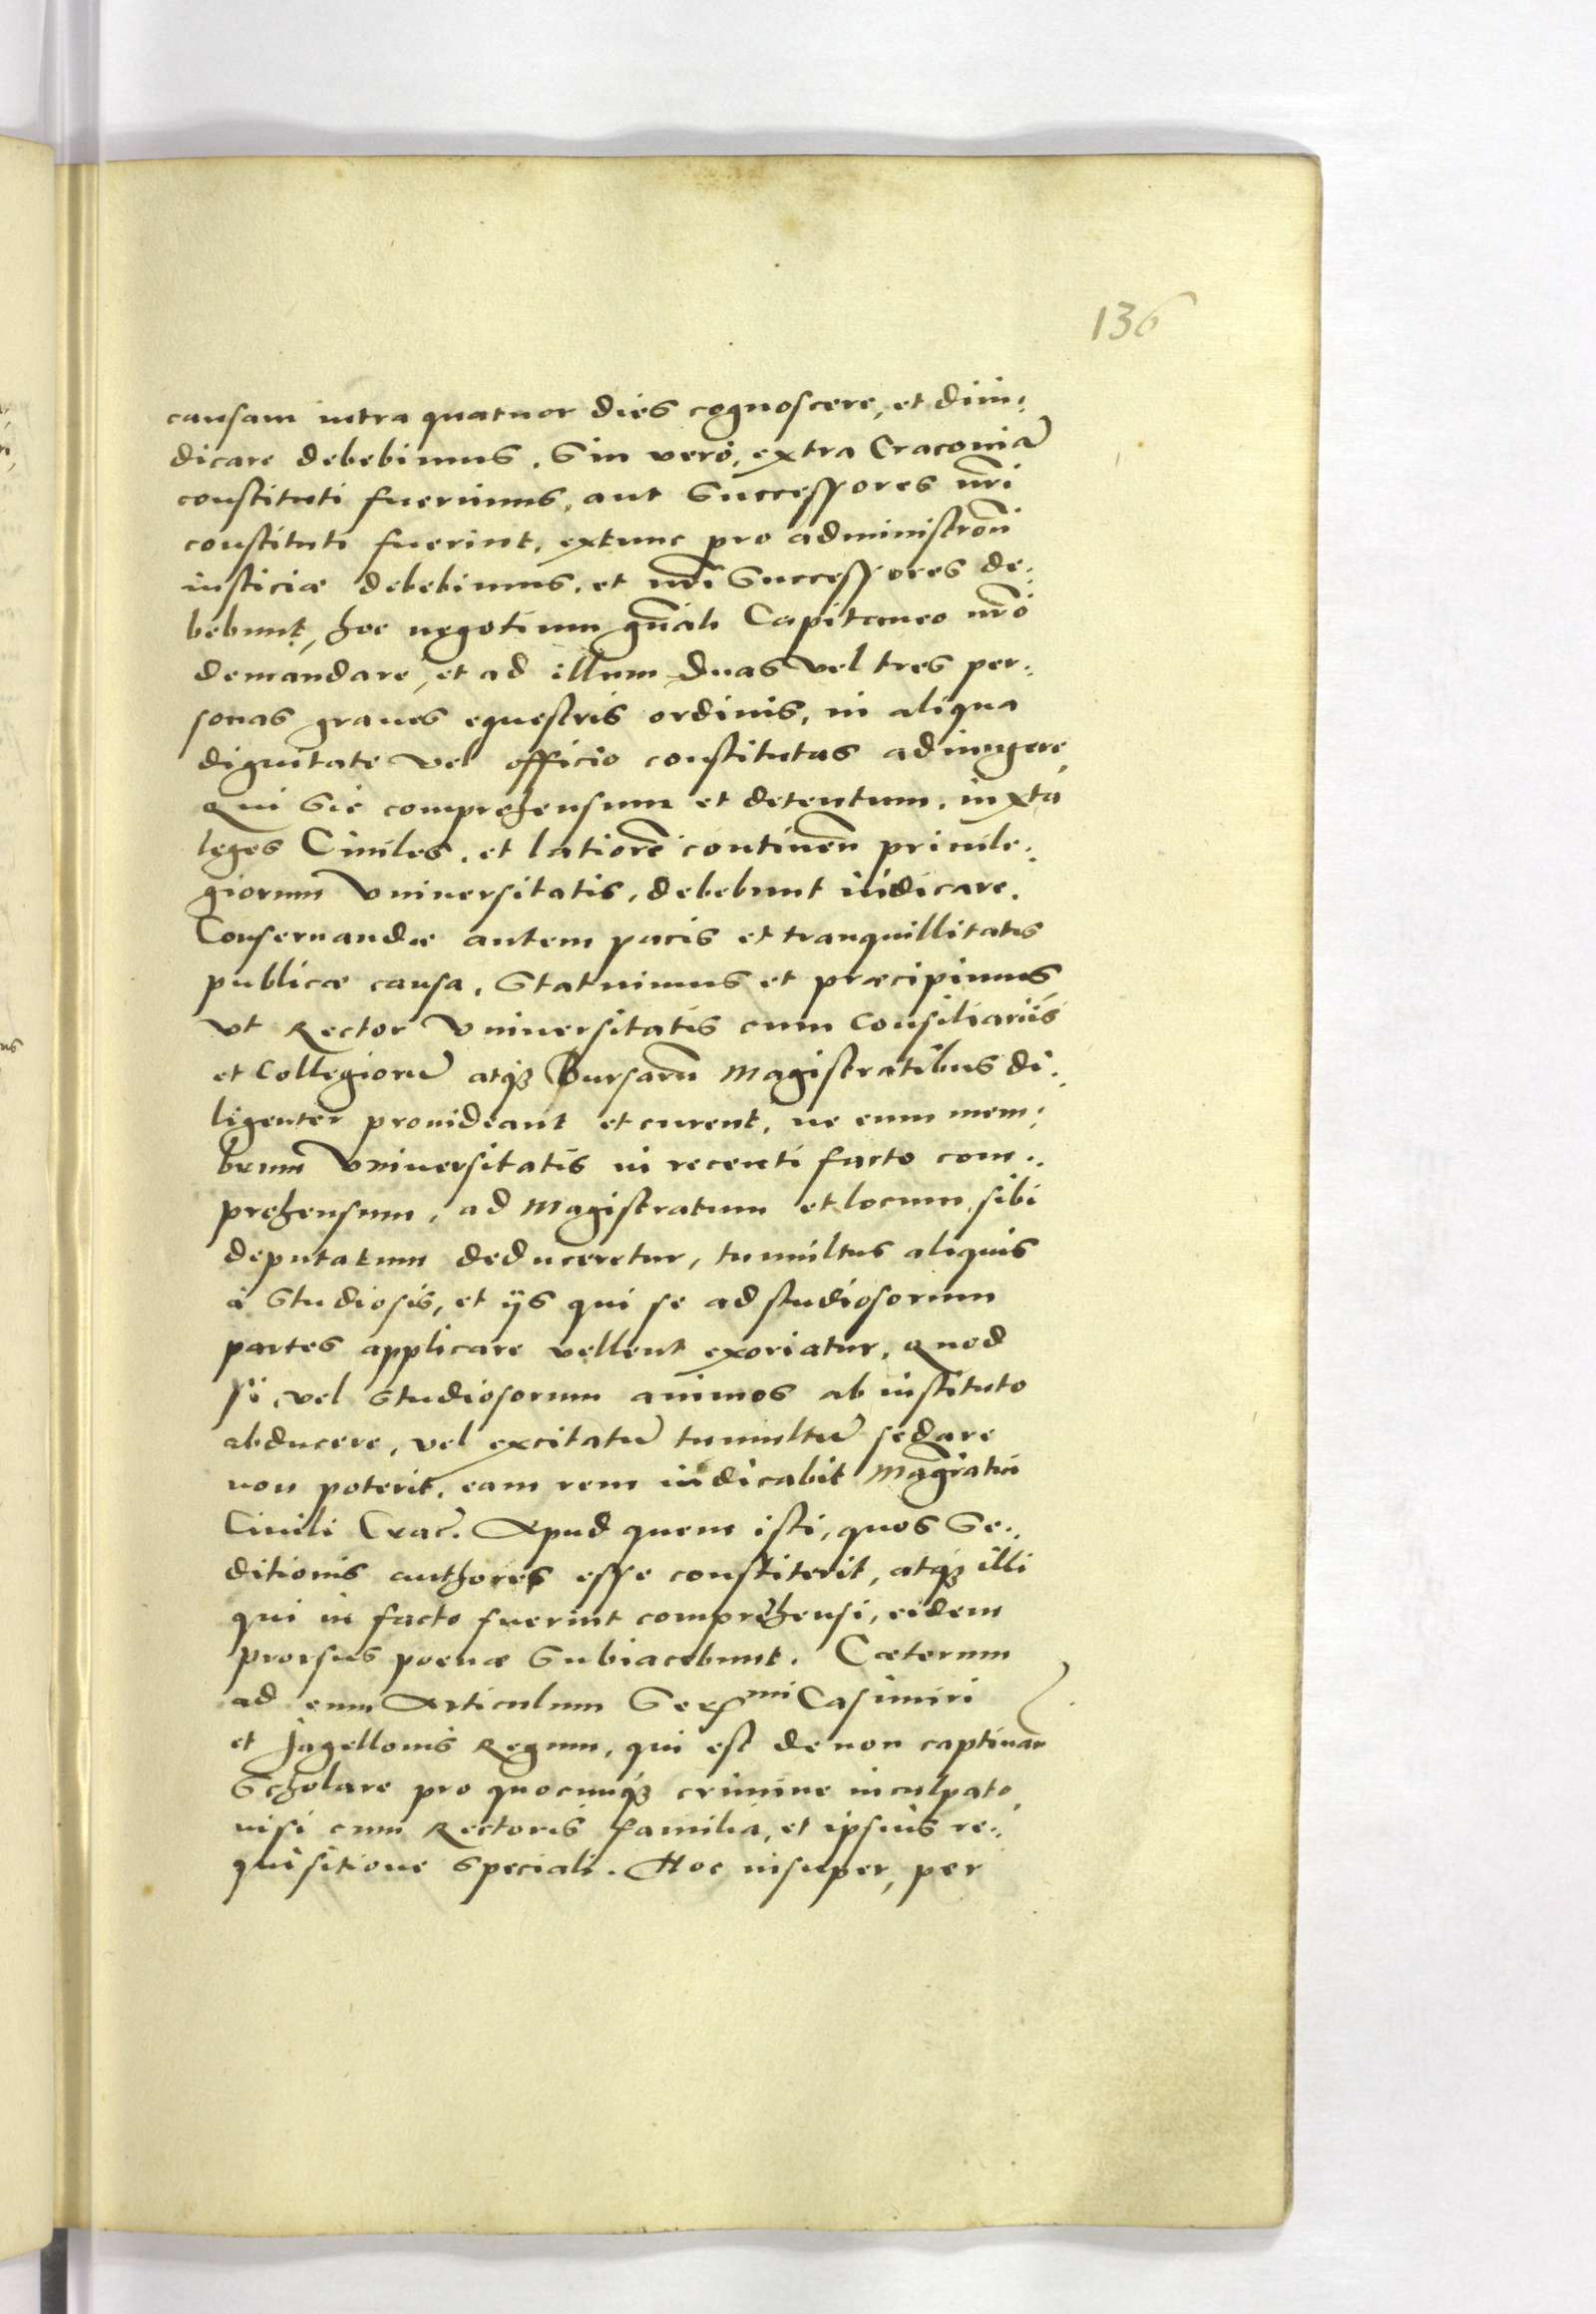 136
causam intra quatuor dies cognoscere, et diiu:
dicare debebimus. Sin vero, extra Cracouiã
constituti fuerimus, aut Successores nr̃i
constituti fuerint, extunc pro administrõni
iusticiæ debebimus, et nr̃i Successores de:
bebunt, hoc negotium gñali Capitaneo nr̃o
demandare, et ad illum duas vel tres per:
sonas graues equestris ordinis, in aliqua
dignitate vel officio constitutas adiungere,
Qui Sic comprehensum et detentum, iuxta
leges Ciuiles, et latiorẽ continẽn priuile:
giorum Vniuersitatis, debebunt iudicare.
Conseruandæ autem pacis et tranquillitatis
publicæ causa, Statuimus et præcipimus,
vt Rector Vniuersitatis cum Consiliariis
et Collegiorũ atq₃ Bursarũ Magistratibus di:
ligenter prouideant et curent, ne eum mem:
brum Vniuersitatis in recenti facto com:
prehensum, ad Magistratum et locum sibi
deputatum deduceretur, tumultus aliquis
à Studiosis, et ijs qui se ad studiosorum
partes applicare vellent exoriatur, quod
si, vel Studiosorum animos ab instituto
abducere, vel excitatũ tumultũ sedare
non poterit, eam rem iudicabit Magr̃atui
Ciuili Crac. Apud quem isti, quos Se:
ditionis authores esse constiterit, atq₃ illi
qui in facto fuerint comprehensi, eidem
prorsus poenæ Subiacebunt. Cæterum
ad eum Articulum Ser^mi Casimiri
et Jagellonis Regum, qui est de non captiuan
Scholare pro quocunq₃ crimine inculpato,
nisi cum Rectoris familia, et ipsius re:
quisitione Speciali. Hoc insuper, per